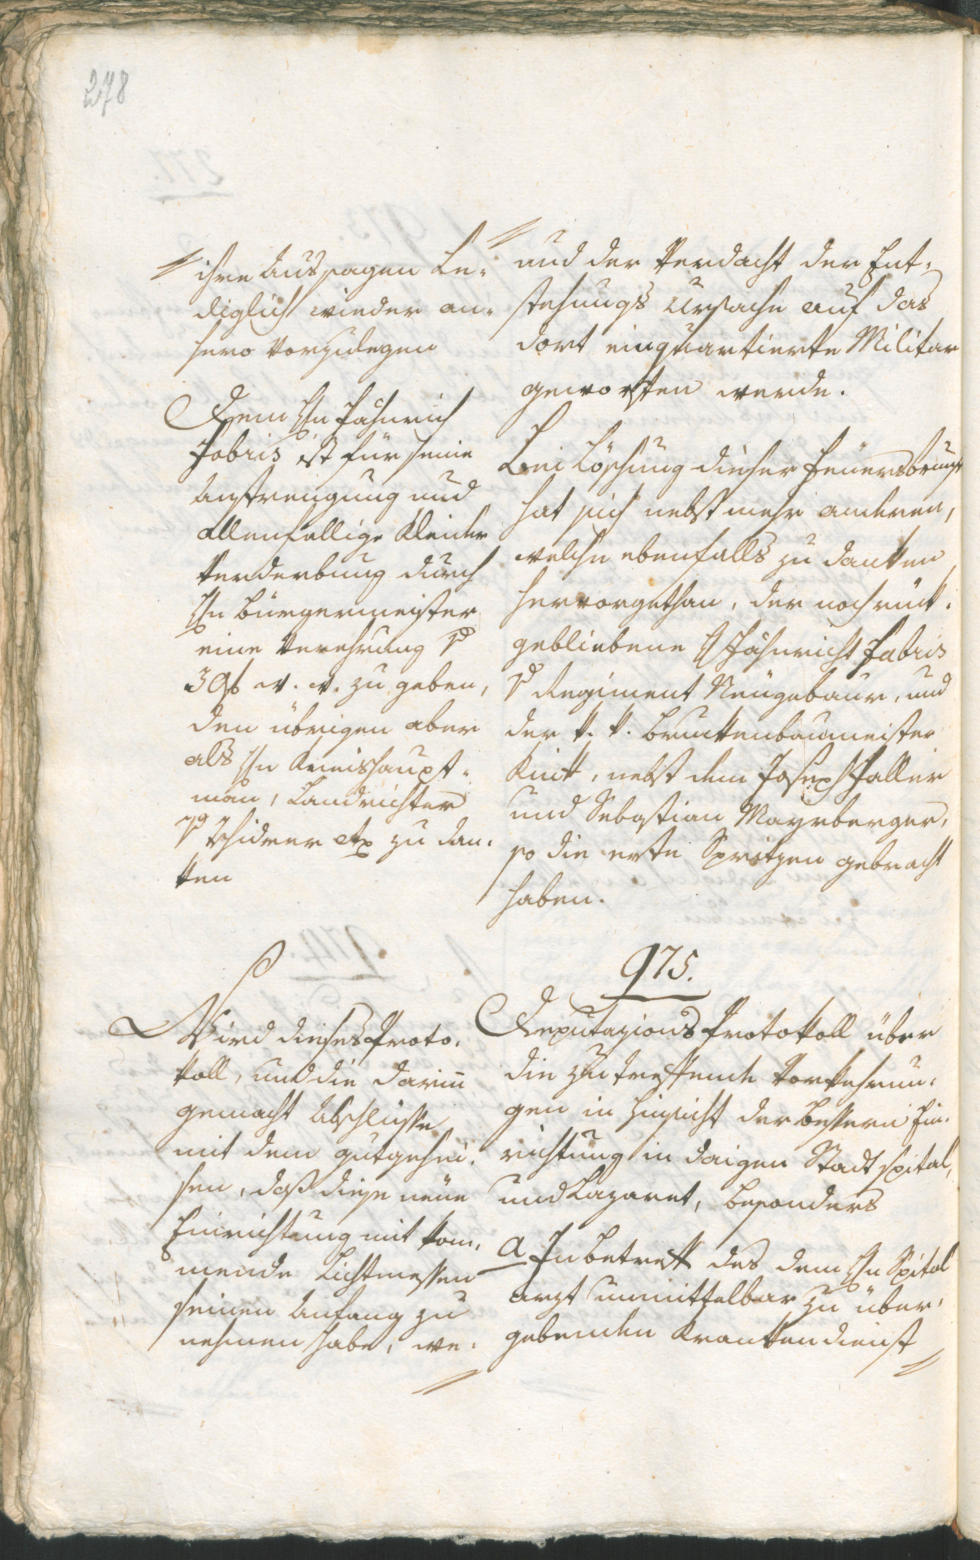 278
ihre Aussagen le-
diglich wieder an-
hero vorzulegen
Dem Hn Fähnrich
Fabris ist für seine
Anstrengung und
allenfallige Kleider
verderbung durch
Hn Bürgermeister
eine Verehrung
zu geben,
den übrigen aber
als Hn Kreishaupt-
man, Landrichter
zu dan-
ken
und der Verdacht der Ent-
stehungs Ursache auf das
dort einquartierte Militar
geworfen werde.
Bei Löschung dieser Feuersbrunst
hat sich nebst mehr anderen,
welche ebenfalls zu danken
hervorgethan, der noch rük-
gebliebene H Fähnrich Fabris
Regiment Neügebaur, und
der k. k. Brukenbaumeister
Kink, nebst dem Joseph Haller
und Sebastian Mayrberger,
so die erste Sprizen gebracht
haben.
975.
Wird dieses Proto-
koll, und die darinn
gemacht Abschlüsse
mit dem gutgehei-
sen, daß diese neüe
Einrichtung mit kom-
mende Lichtmessen
seinen Anfang zu
nehmen habe, we-
Deputazions Protokoll über
die zu treffende Vorkehrun-
gen in Hinsicht der bessern Ein-
richtung in daigen Stadtspital,
und Lazaret, besonders
a In betreff des dem Hn Spital
arzt unmittelbar zu über-
gebenden Krankendienst